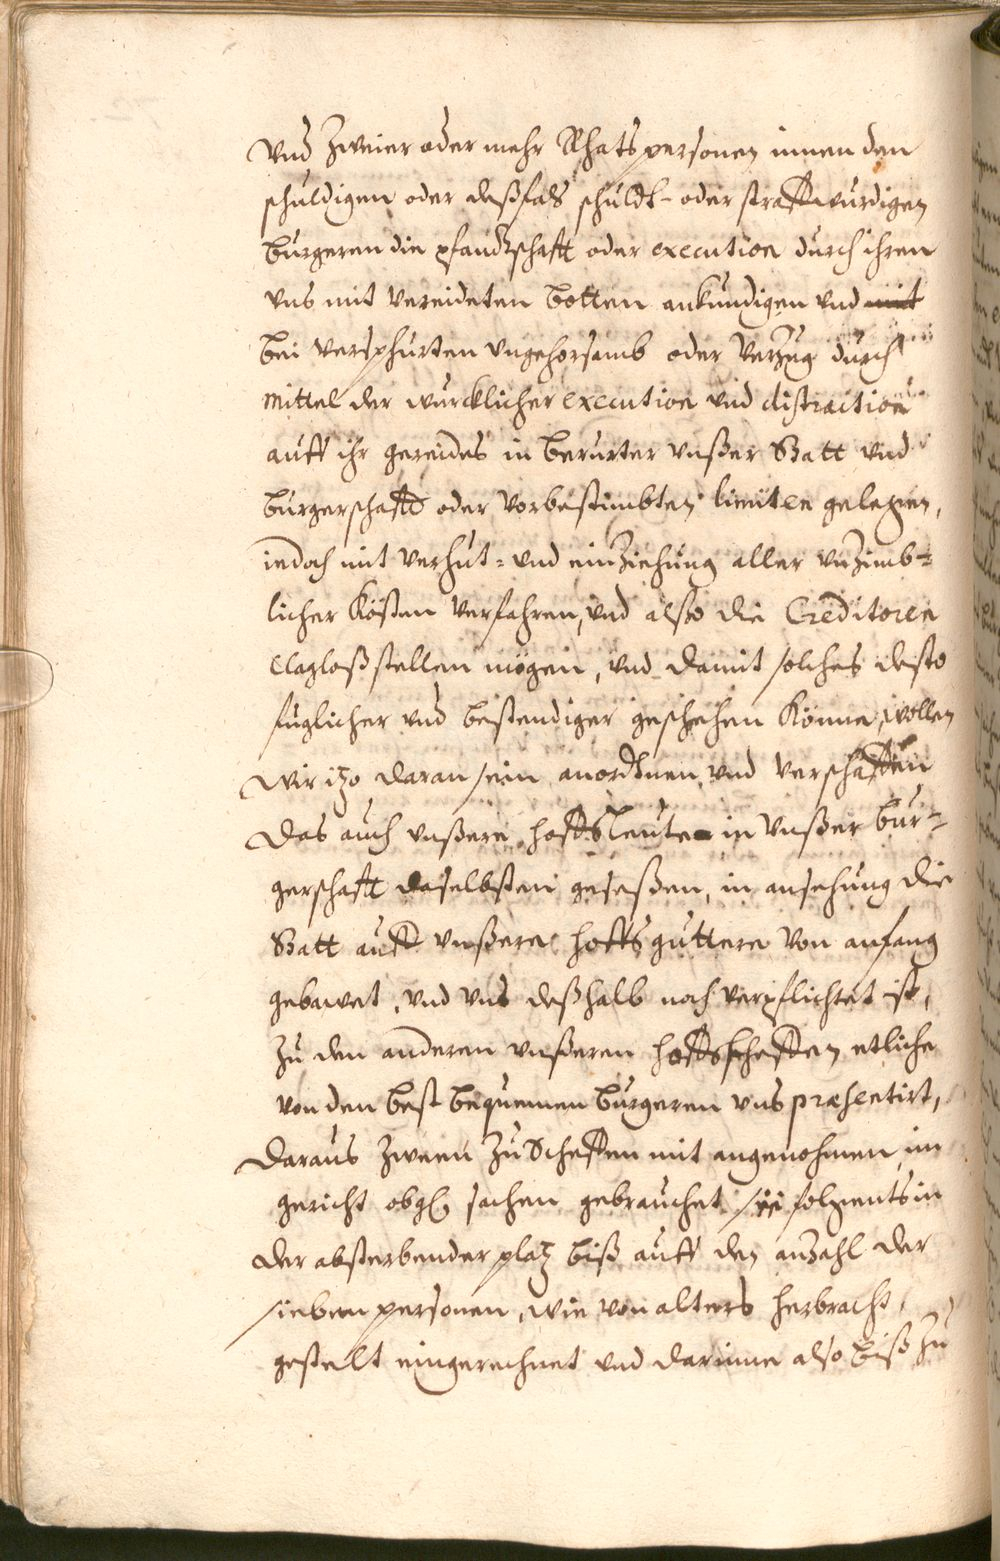 Vnd Zweier oder mehr Rhatspersonen innen den
schuldigen oder deßfals schuldt- oder straffwurdigen
burgeren die pfandtschafft oder execution durch ihren
vns mit vereideten botten ankundigen vnd mit
bei verspuhrten vngehorsamb oder verzug durch
mittel der wurcklicher execution vnd distraction
auff ihr gereides in berurter vnßer Statt vnd
burgerschafft oder vorbestimbten limiten gelegen,
iedoch mit verhut- und einZiehung aller vnZimb=
licher Kösten verfahren, vnd alßo die Creditoren
claglosß stellen mögen, vnd damit solches desto
fuglicher vnd bestendiger geschehen Könne, wollen
wir itzo daran sein anordtnen vnd verschaffen
das auch vnßere hoffsleute in vnßer bur=
gerschafft daselbsten geseßen, in ansehung die
Statt auff vnßere hoffsguttere von anfang
gebawet, vnd vns deßhalb noch verpflichtet ist,
Zu den anderen vnßeren hoffsscheffen etliche
von den best bequemen burgeren vns præsentirt,
daraus Zween Zu Scheffen mit angenohmen, im
gericht obg[l] sachen gebrauchet, folgents in
der absterbender platz biß auff den anZahl der
sieben personen, wie von alters herbracht,
gestelt eingerechnet vnd darinne also biß Zu